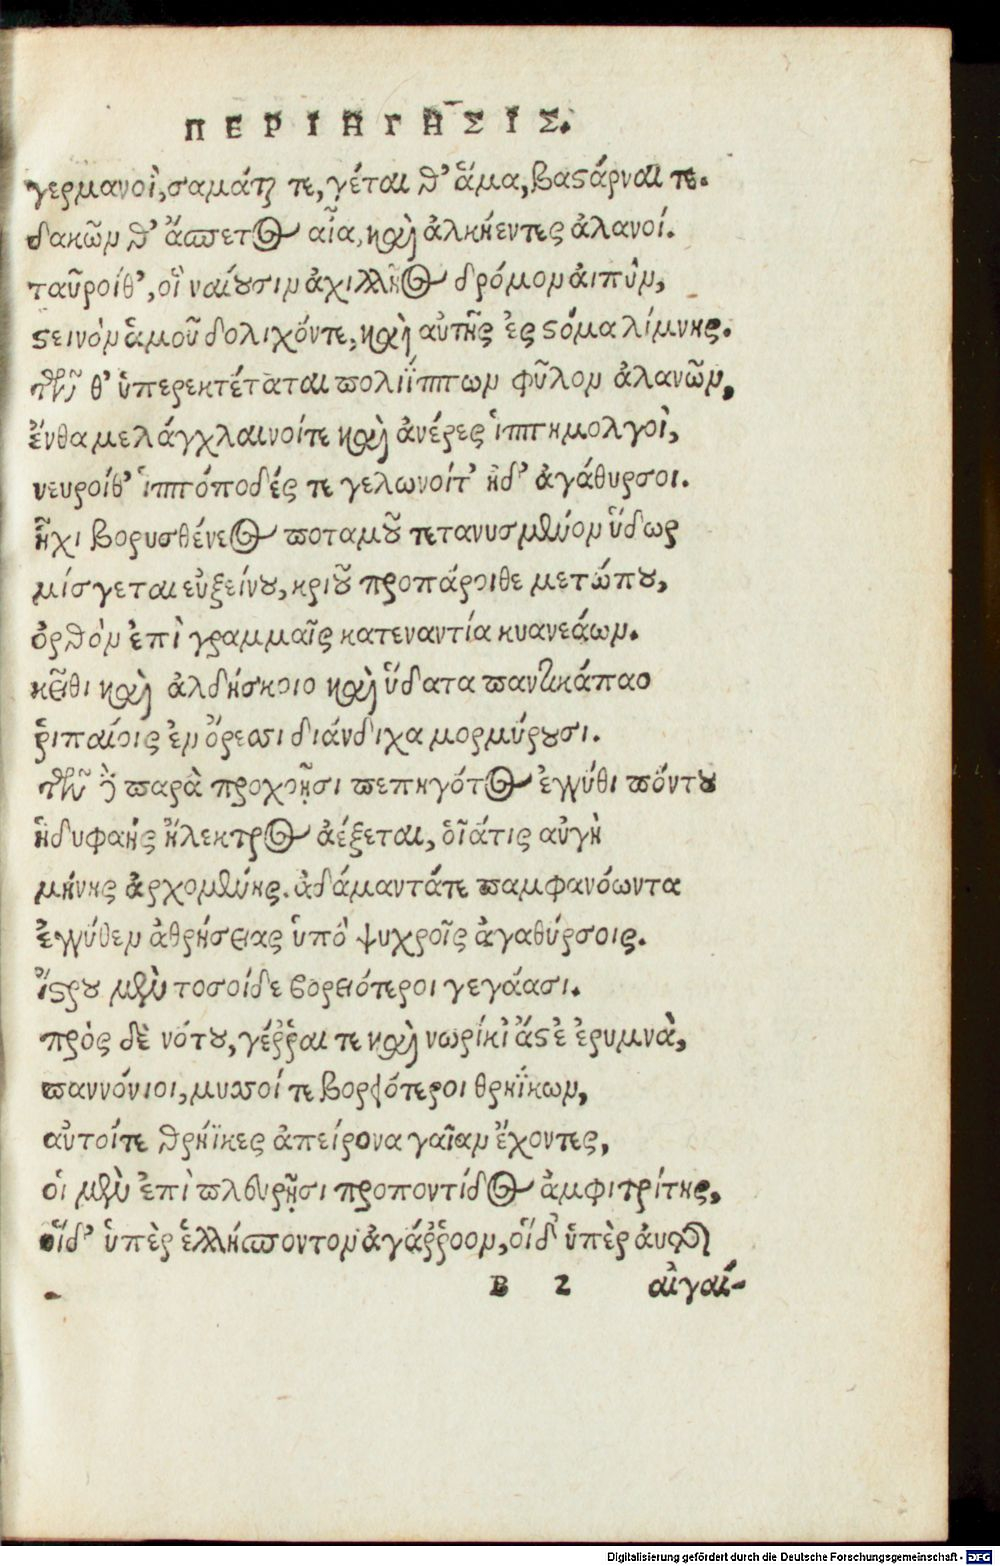 ΠΕΡΙΗΓΗΣΙΣ.
γερμανοὶ, σαμάτ τε, γέται θ' ἅμα, βαϛάρναι τε.
δακῶν θ' ἄσπετος αἶα, καὶ ἀλκήεντες ἀλανοί.
ταῦροίθ', οἳ ναίουσιν ἀχιλλῆος δρόμον ἀιπὺν,
ϛεινὸν ἁμοῦ δολιχόντε, καὶ αὐτῆς ἐς ϛόμα λίμνης.
τῶν θ' ὑπερεκτέταται πολιΐππων φῦλον ἀλανῶν,
ἔνθα μελάγχλαινοίτε καὶ ἀνέρες ἱππημολγοὶ,
νευροίθ' ἱππόποδές τε γελωνοίτ' ἠδ' ἀγάθυρσοι.
ἧχι βορυσθένεος ποταμοῦ τετανυσμένον ὕδωρ
μίσγεται εὐξείνου, κριοῦ προπάροιθε μετώπου,
ὀρθὸν ἐπὶ γραμμαῖς κατεναντία κυανεάων.
κεῖθι καὶ ἀλδήσκοιο καὶ ὕδατα παντικάπαο
ῥιπαίοις ἐν ὄρεσσι διάνδιχα μορμύρουσι.
τῶν δὲ παρὰ προχοῇσι πεπηγότος ἐγγύθι πόντου
ἡδυφαὴς ἤλεκτρος ἀέξεται, ὁῖάτις αὐγὴ
μήνης ἀρχομένης. ἀδάμαντάτε παμφανόωντα
ἐγγύθεν ἀθρήσειας ὑπὸ ψυχροῖς ἀγαθύρσοις.
ἴϛρου μὲν τοσοίδε βορειότεροι γεγάασι.
πρὸς δὲ νότου, γέῤῥαι τε καὶ νωρίκι' ἄϛε' ἐρυμνὰ,
παννόνιοι, μυσοί τε βορειότεροι θρηΐκων,
αὐτοίτε θρήϊκες ἀπείρονα γαῖαν ἔχοντες,
οἱ μὲν ἐπὶ πλευρῇσι προποντίδος ἀμφιτρίτης,
οἵδ' ὑπὲρ ἑλλήσποντον ἀγάῤῥοον, οἵδ' ὑπὲρ ἀυτὴν
B 2 αἰγαί-
Digitalisierung gefördert durch die Deutsche Forschungsgemeinschaft - DFG